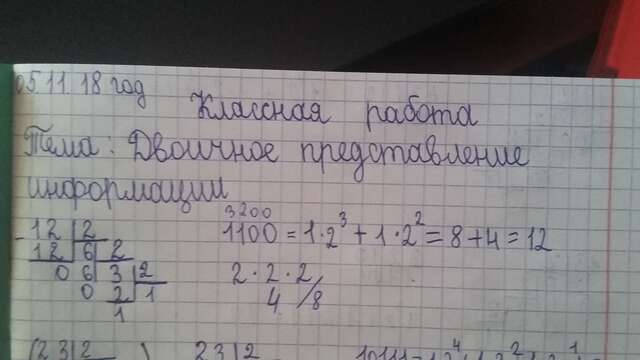 05 11 18 год
Классная работа
Тема: Двоичное представление
информации
3200
12 2 1100 = 1·2³ + 1·2² = 8 + 4 = 12
12 6 2
0 6 3 2 2·2·2
0 2 1 4 /8
1
23 2 23 2